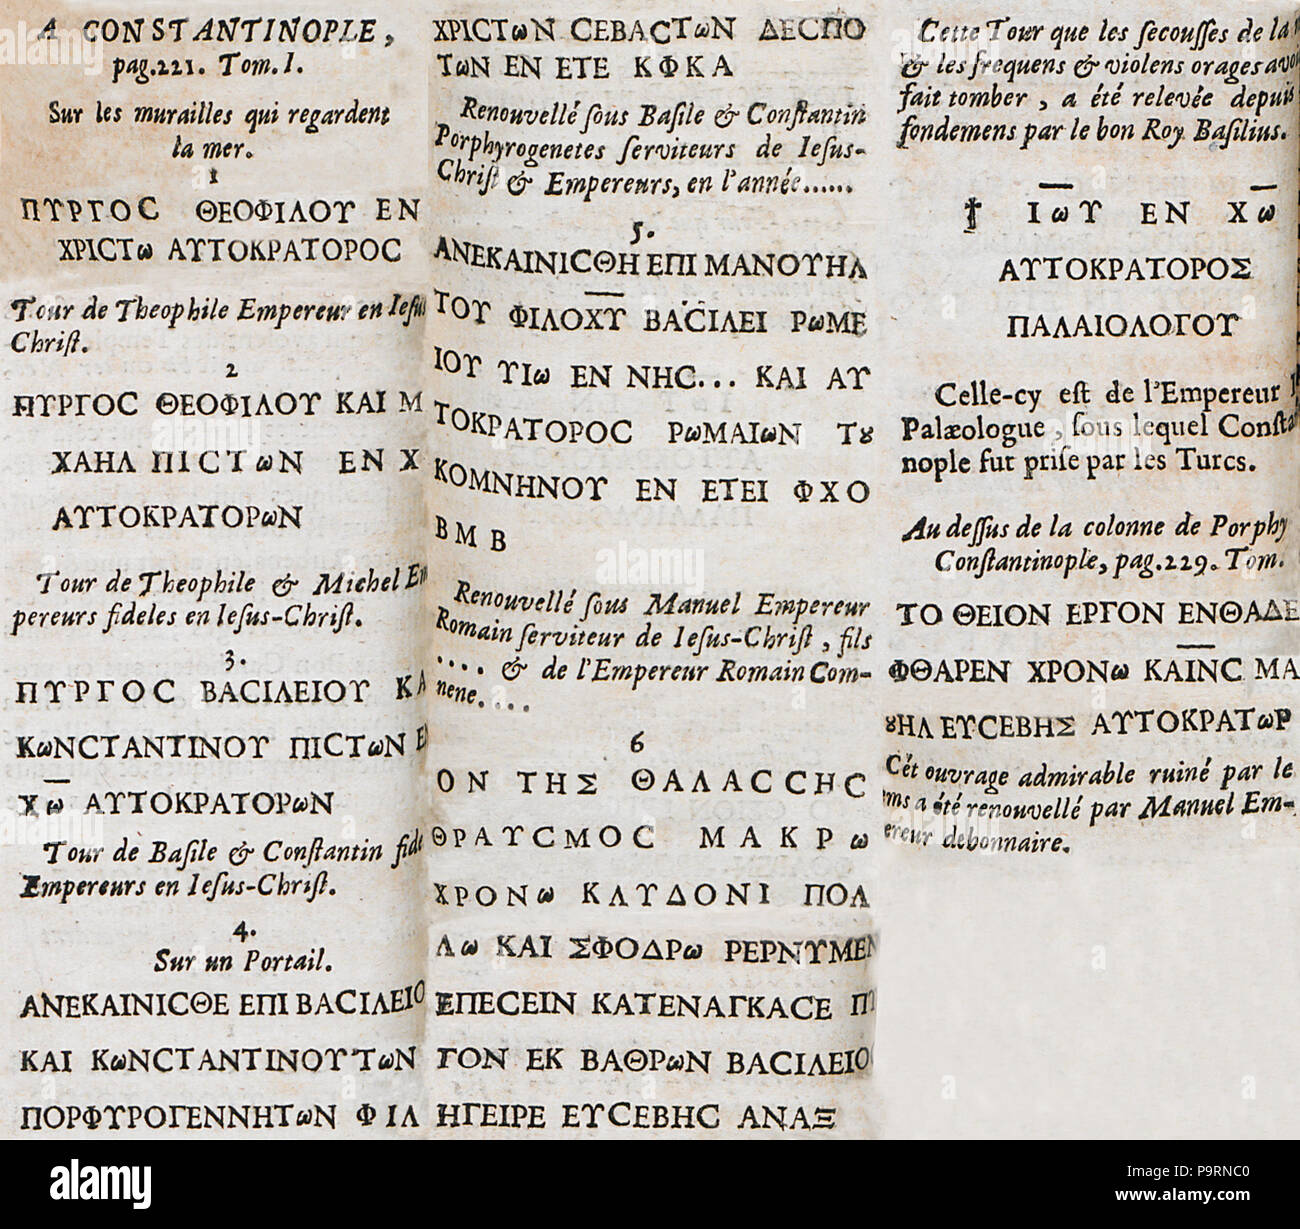 A CONSTANTINOPLE,
pag.221. Tom.I.
Sur les murailles qui regardent
la mer.
1
ΠΥΡΓΟC ΘΕΟΦΙΛΟΥ ΕΝ
ΧΡΙCΤω ΑΥΤΟΚΡΑΤΟΡΟC
Tour de Theophile Empereur en Iesus
Chriſt.
2
ΠΥΡΓΟC ΘΕΟΦΙΛΟΥ ΚΑΙ Μ
ΧΑΗΛ ΠΙCΤωΝ ΕΝ Χ
ΑΥΤΟΚΡΑΤΟΡωΝ
Tour de Theophile & Michel Em
pereurs fideles en Ieſus-Chriſt.
3.
ΠΥΡΓΟC ΒΑCΙΛΕΙΟΥ ΚΑ
ΚωΝCΤΑΝΤΙΝΟΥ ΠΙCΤωΝ ΕΝ
Χω ΑΥΤΟΚΡΑΤΟΡωΝ
Tour de Baſile & Conſtantin fide
Empereurs en Ieſus-Chriſt.
4.
Sur un Portail.
ΑΝΕΚΑΙΝΙCΘΕ ΕΠΙ ΒΑCΙΛΕΙΟ
ΚΑΙ ΚωΝCΤΑΝΤΙΝΟΥ ΤωΝ
ΠΟΡΦΥΡΟΓΕΝΝΗΤωΝ ΦΙΛ
ΧΡΙCΤωΝ CΕΒΑCΤωΝ ΔΕCΠΟ
ΤωΝ ΕΝ ΕΤΕ ΚΦΚΑ
Renouvellé ſous Baſile & Conſtantin
Porphyrogenetes ſerviteurs de Ieſus-
Chriſt & Empereurs, en l'année......
5.
ΑΝΕΚΑΙΝΙCΘΗ ΕΠΙ ΜΑΝΟΥΗΛ
ΤΟΥ ΦΙΛΟΧΥ ΒΑCΙΛΕΙ ΡωΜΕ
ΙΟΥ ΥΙω ΕΝ ΝΗC... ΚΑΙ ΑΥ
ΤΟΚΡΑΤΟΡΟC ΡωΜΑΙωΝ Τȣ
ΚΟΜΝΗΝΟΥ ΕΝ ΕΤΕΙ ΦΧΟ
Β Μ Β
Renouvellé ſous Manuel Empereur
Romain ſerviteur de Ieſus-Chriſt, fils
.... & de l'Empereur Romain Com-
nene.....
6
ΟΝ ΤΗΣ ΘΑΛΑCCΗC
ΘΡΑΥCΜΟC ΜΑΚΡω
ΧΡΟΝω ΚΛΥΔΟΝΙ ΠΟΛ
Λω ΚΑΙ ΣΦΟΔΡω ΡΕΡΝΥΜΕΝ
ΕΠΕCΕΙΝ ΚΑΤΕΝΑΓΚΑCΕ ΠΥ
ΓΟΝ ΕΚ ΒΑΘΡωΝ ΒΑCΙΛΕΙΟC
ΗΓΕΙΡΕ ΕΥCΕΒΗC ΑΝΑΞ
Cette Tour que les ſecouſſes de la
& les frequens & violens orages avoi
fait tomber, a été relevée depuis
fondemens par le bon Roy Baſilius.
† ΙωΥ ΕΝ Χω
ΑΥΤΟΚΡΑΤΟΡΟΣ
ΠΑΛΑΙΟΛΟΓΟΥ
Celle-cy eſt de l'Empereur J
Palæologue, ſous lequel Conſta
nople fut priſe par les Turcs.
Au deſſus de la colonne de Porphy
Conſtantinople, pag.229. Tom.
ΤΟ ΘΕΙΟΝ ΕΡΓΟΝ ΕΝΘΑΔΕ
ΦΘΑΡΕΝ ΧΡΟΝω ΚΑΙΝC ΜΑ
ȣΗΛ ΕΥCΕΒΗΣ ΑΥΤΟΚΡΑΤωΡ
Cét ouvrage admirable ruiné par le
ms a été renouvellé par Manuel Em-
ereur debonnaire.
alamy
Image ID: P9RNC0
www.alamy.com